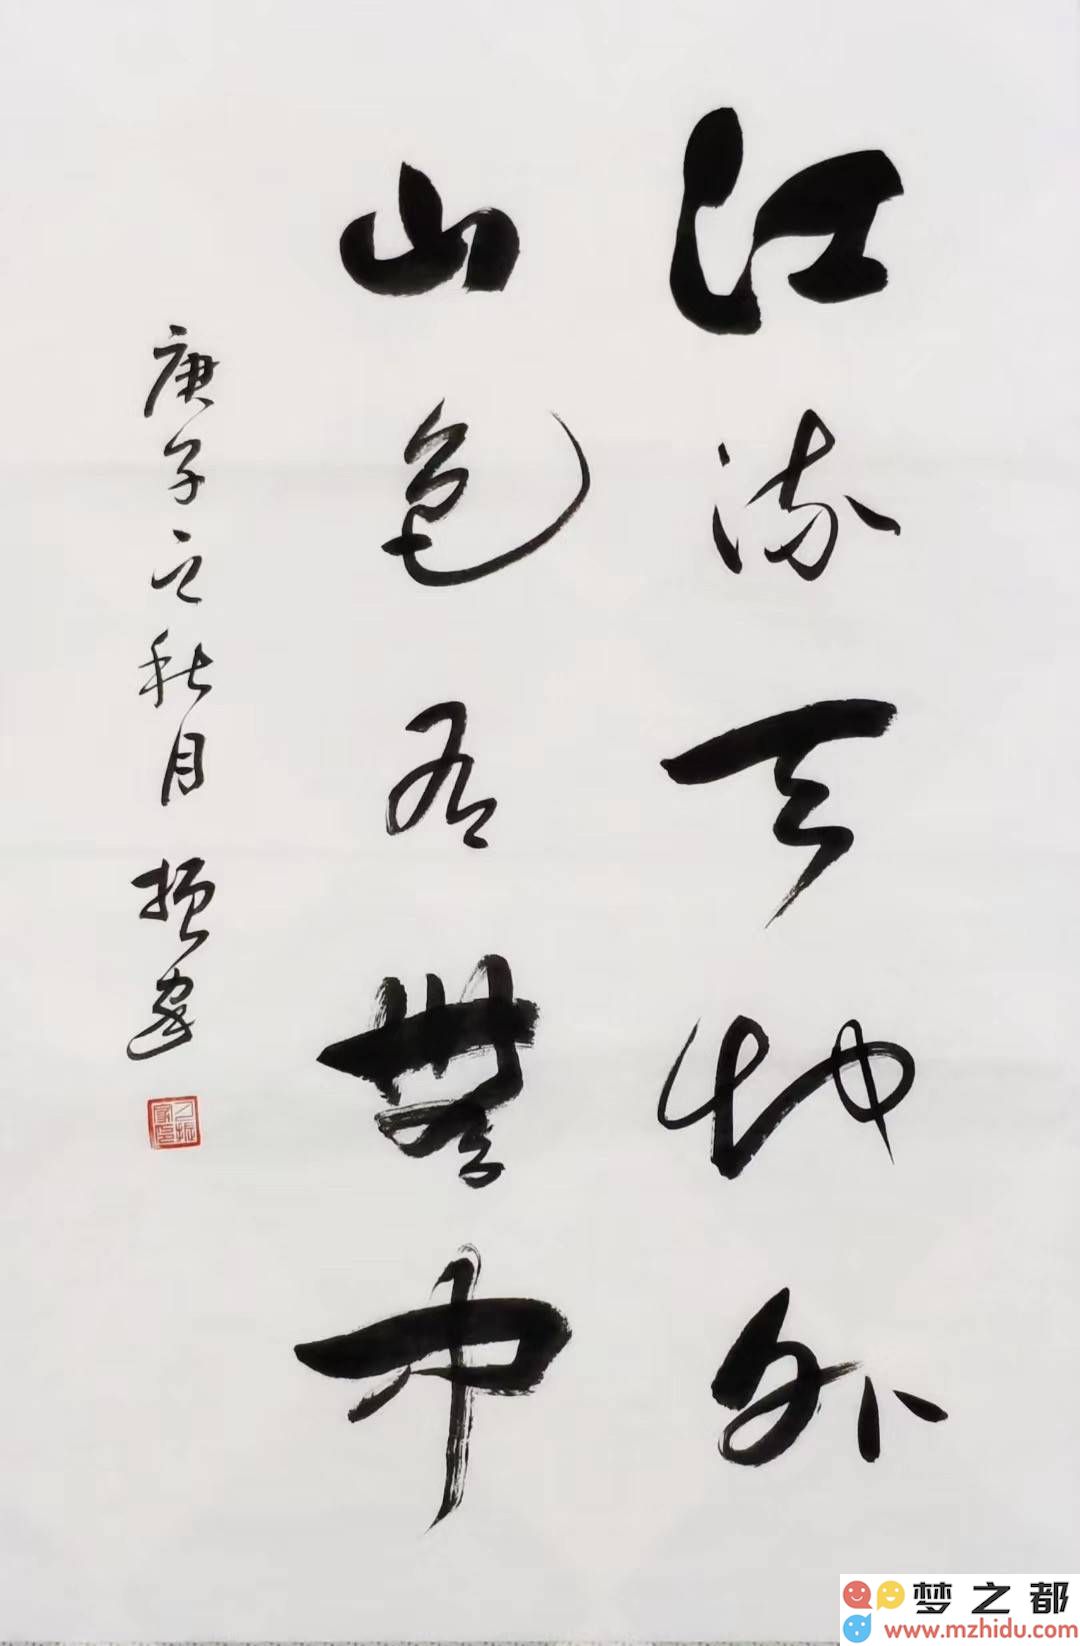 江流天地外
山色有無中
庚子之秋月振家
梦之都
www.mzhidu.com